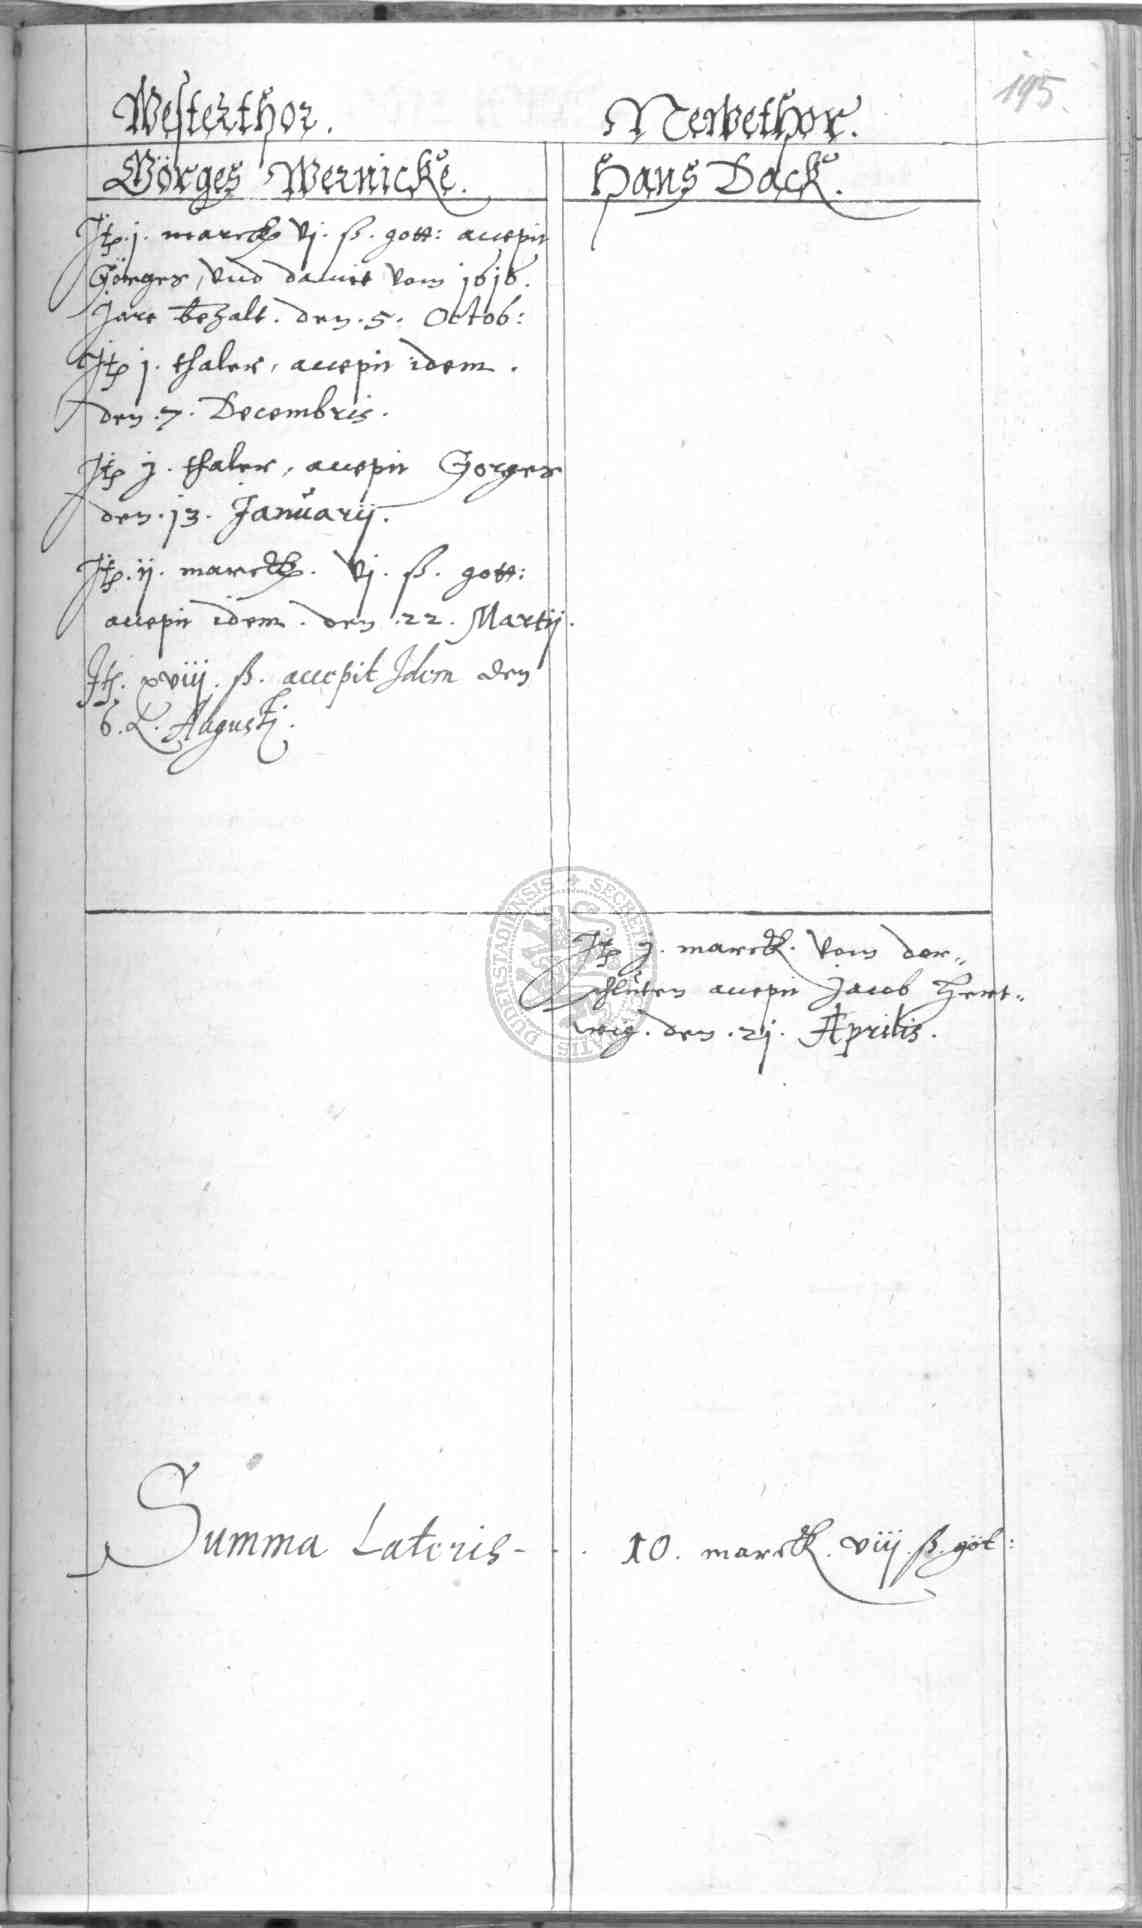 195
Westerthor.
Görges Wernicke.
Jt. j. marck vj. ß. gott: accepit
Görges, und damit vom 1616.
Jare bezalt. den. 5. Octob:
Jt j. thaler, accepit idem.
den. 7. Decembris.
Jt j. thaler, accepit Görges
den. 13. Januarij.
Jt. ij. marck. vj. ß. gott:
accepit idem. den 22. Martij.
Jt. xviij. ß. accepit Idem den
6. Augustj.
Newethor.
Hans Dack.
Jt j. marck. vom der„
schlüten accepit Jacob Hert„
wig. den. 21. Aprilis.
Summa Lateris - - . 10. marck. viij. ß. göt:
SECRETUM CIVITATIS DUDERSTADIENSIS